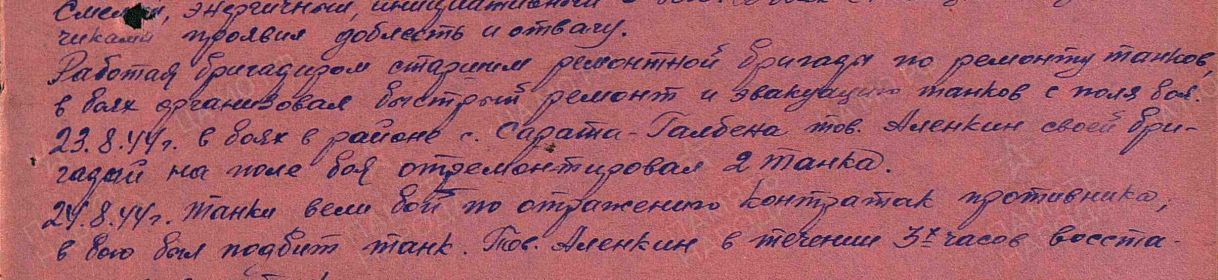 Смелый, энергичный, инициативный
чиками проявил доблесть и отвагу.
Работая бригадиром старшим ремонтной бригады по ремонту танков,
в боях организовал быстрый ремонт и эвакуацию танков с поля боя.
23.8.44г. в боях в районе с. Сарата-Галбена тов. Аленкин своей бри-
гадой на поле боя отремонтировал 2 танка.
24.8.44г. танки вели бой по отражению контратак противника,
в бою был подбит танк. Тов. Аленкин в течении 3х часов восста-